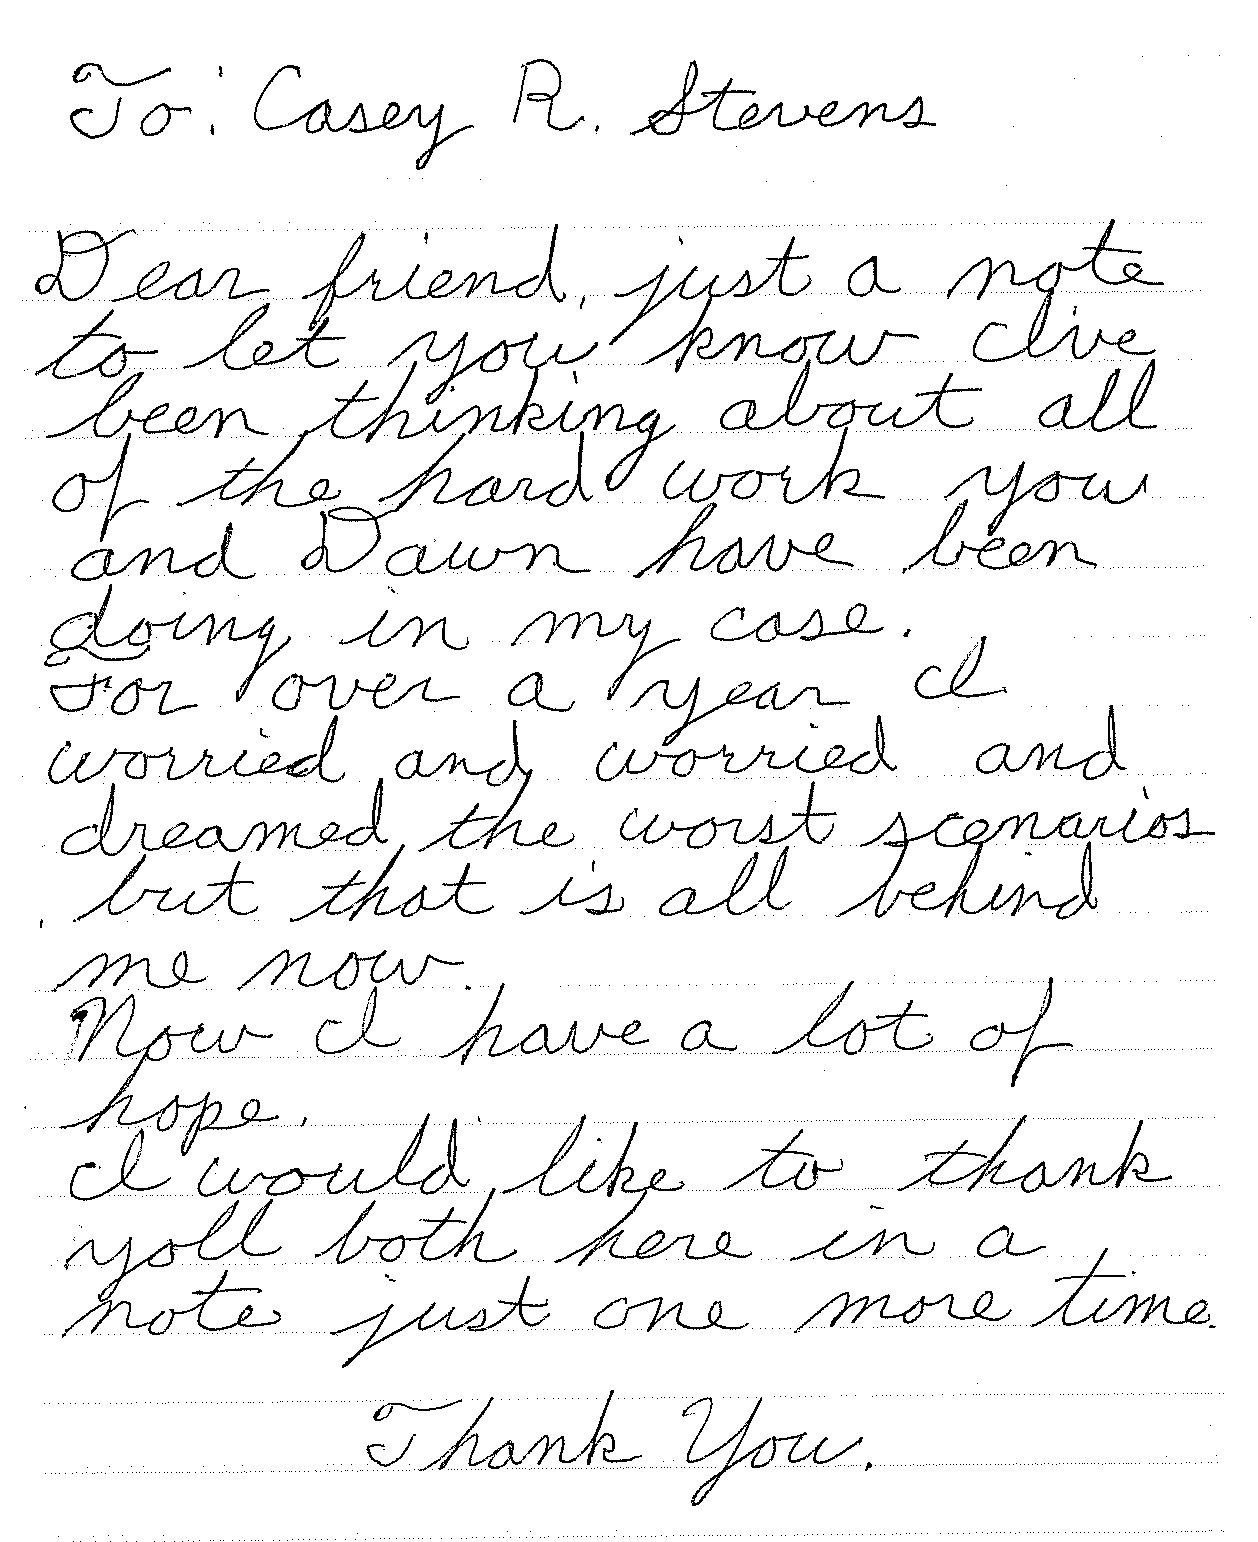 To: Casey R. Stevens
Dear friend, just a note
to let you know I've
been thinking about all
of the hard work you
and Dawn have been
doing in my case.
For over a year I
worried and worried and
dreamed the worst scenarios
but that is all behind
me now.
Now I have a lot of
hope.
I would like to thank
yoll both here in a
note just one more time.
Thank You.